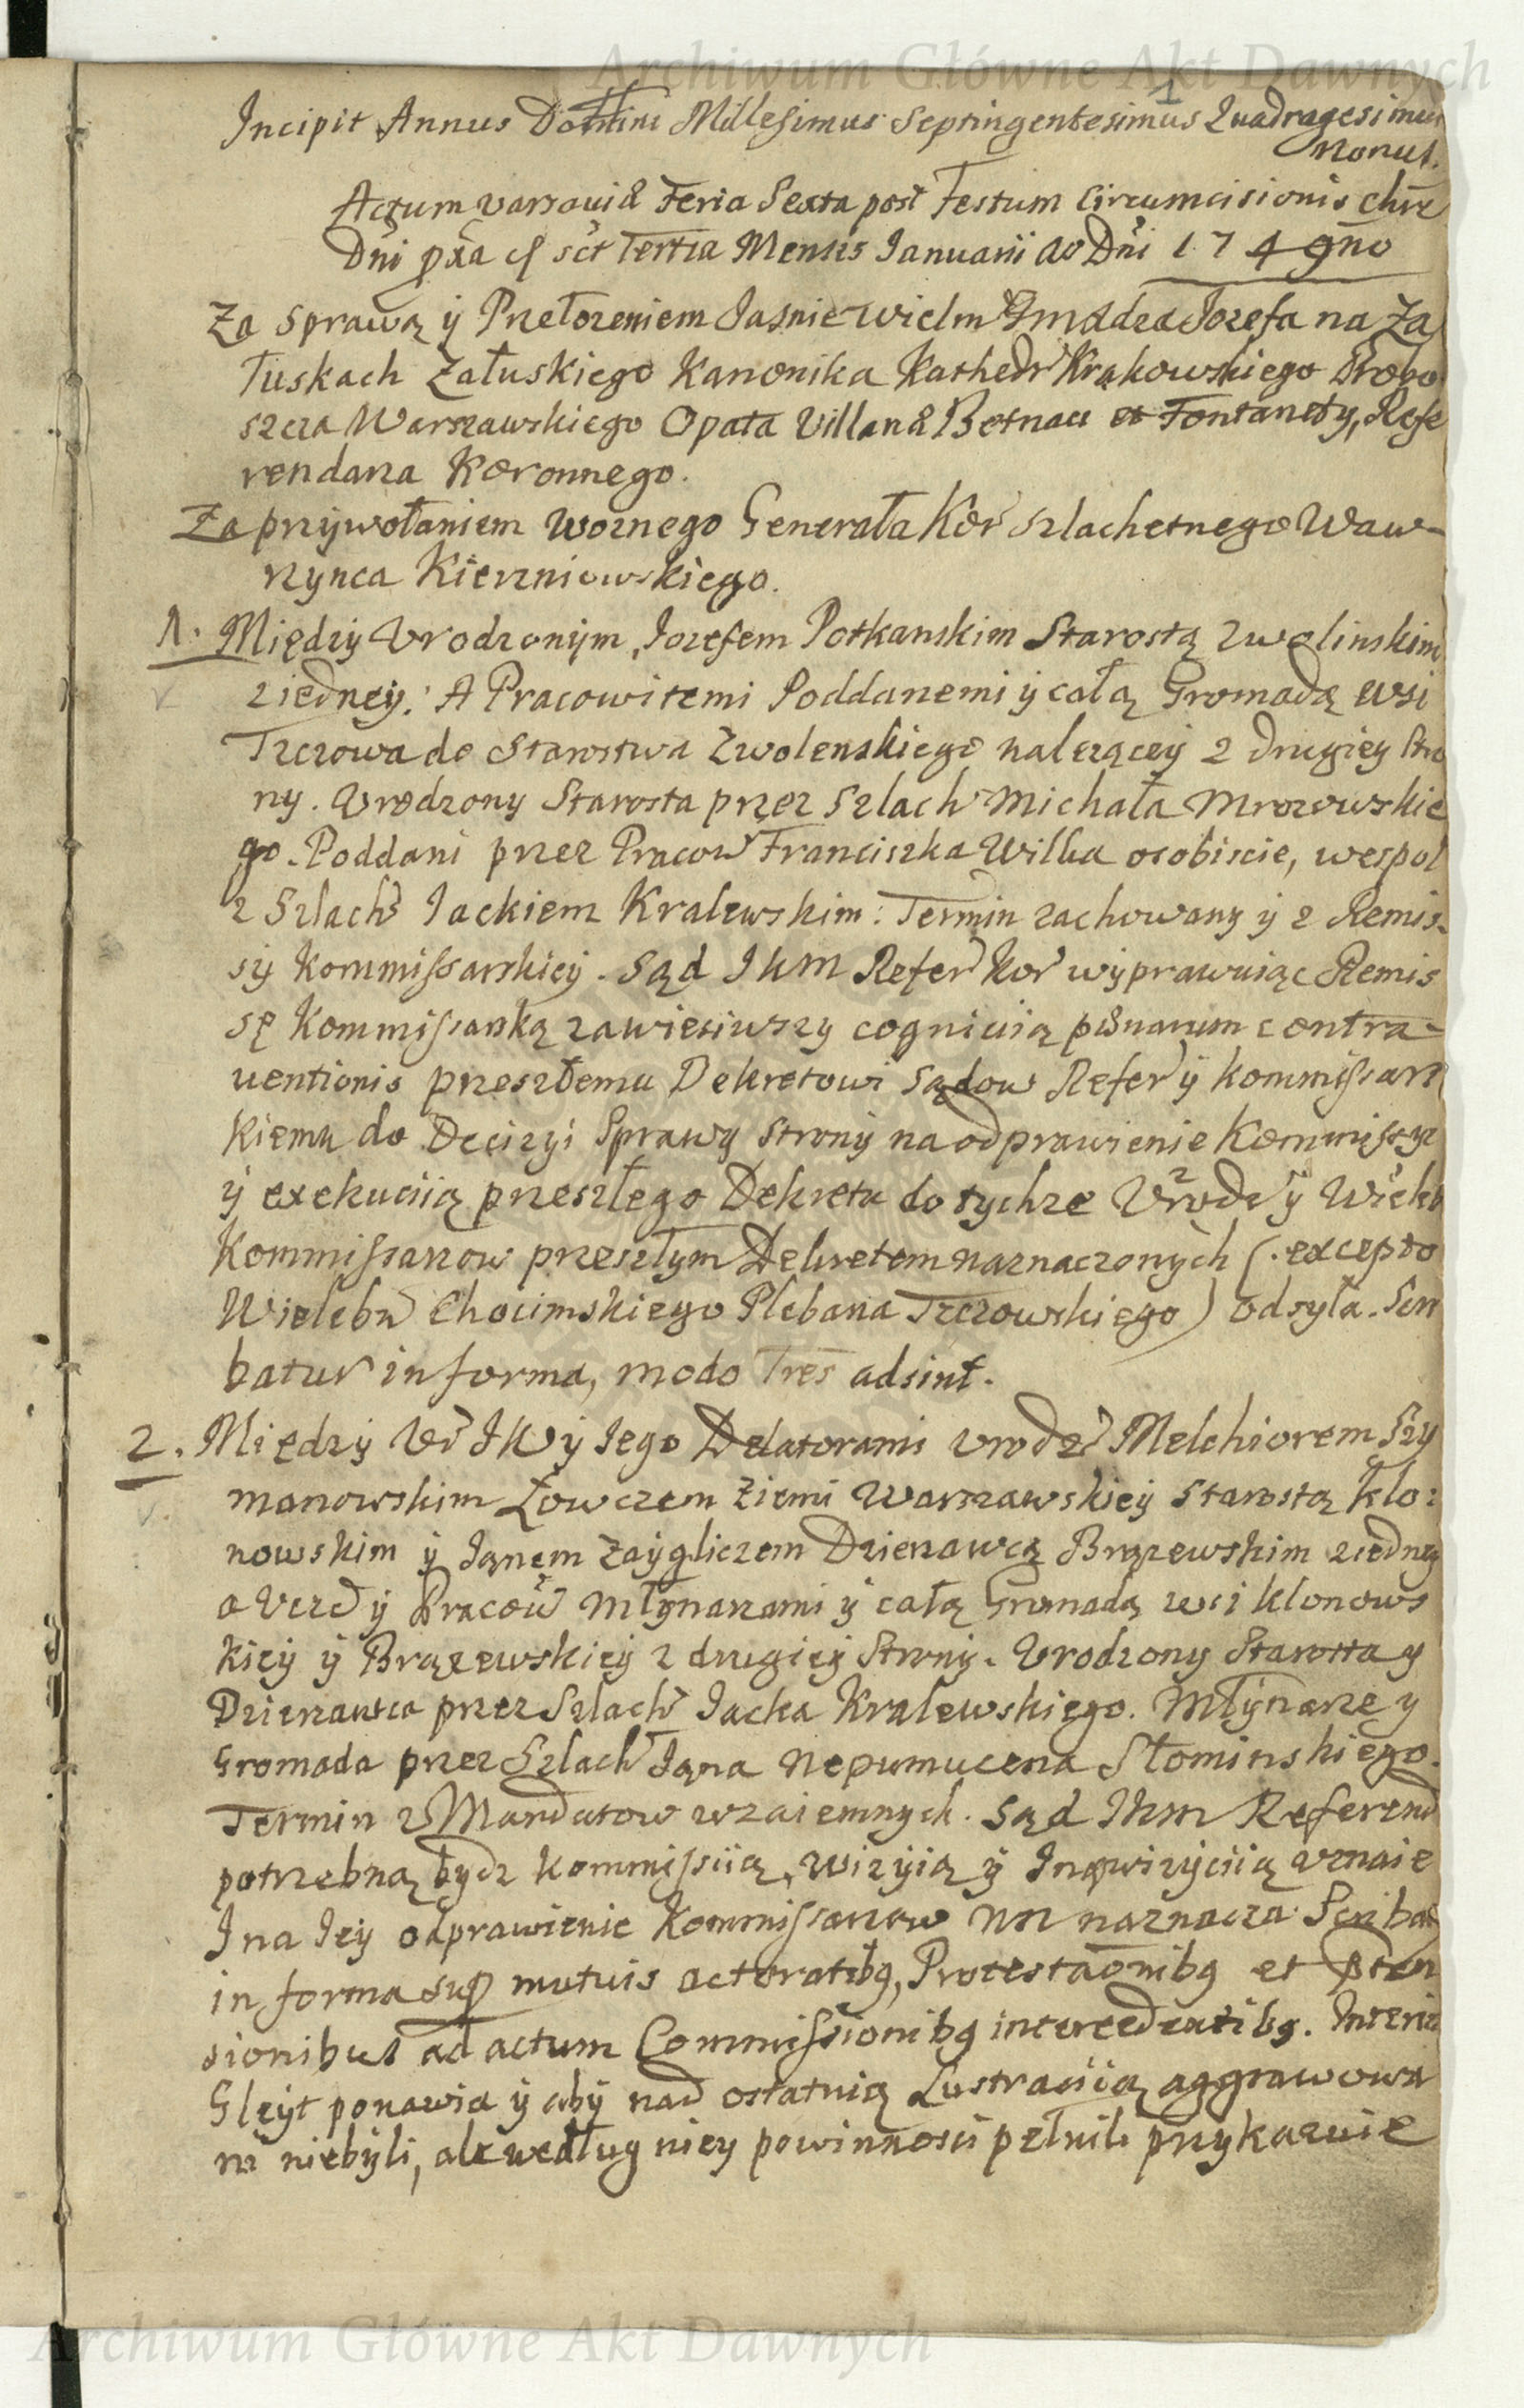 Archiwum Główne Akt Dawnych
1
Incipit Annus Domini Millesimus Septingentesimus Quadragesimus
Nonus.
Actum Varsaviæ Feria Sexta post Festum Circumcisionis Chri
Dni pxa sct Tertia Mensis Ianuarii Ao Dni 1749no
Za Sprawą ÿ Przełozeniem Jasnie Wielm Jozefa na Za
łuskach Załuskiego Kanonika Kathedr Krakowskiego Probo
szcza Warszawskiego Opata Villanæ Betnau et Fontanety, Refe
rendarza Koronnego.
Za przÿwołaniem Woznego Generała Kor Szlachetnego Waw-
rzynca Kierzniowskiego.
1. Międzÿ Vrodzonÿm Iozefem Potkanskim Starostą Zwolinskim
ziedneÿ. A Pracowitemi Poddanemi ÿ całą Gromadą wsi
Tczowa do Starostwa Zwolenskiego naleząceÿ z drugiey Stro
ny. Vrodzony Starosta przez Szlach Michała Mrozowskie
go. Poddani przez Pracow Franciszka Wilka osobiscie, wespol
z Szlach Iackiem Kralewskim. Termin zachowany ÿ z Remis-
sÿ Kommissarskieÿ. Sąd JKM Refer Kor wÿprawuiąc Remis
sę Kommissarską zawiesiwszy cognicią pænarum contra-
uentionis przeszłemu Dekretowi Sądow Refer ÿ Kommissars
kiemu do Decizÿi Sprawy Stronÿ na odprawienie Kommissyi
ÿ exekuciią przeszłego Dekretu do tychze Vrodz ÿ Wieleb
Kommissarzow przeszłym Dekretem naznaczonÿch (. excepto
Wielebn Chocimskiego Plebana Tczowskiego) odsyła. Scri
batur in forma, modo Tres adsint.
2. Międzÿ Vr JKM ÿ Iego Delatorami Vrodz Melchiorem Szy
manowskim Łowczem Ziemi Warszawskieÿ Starostą Klo:
nowskim ÿ Ianem Zaÿgliczem Dzierzawcą Brązewskim zedney
a Vczc ÿ Pracow Młynarzami ÿ całą Gromadą wsi Klonows
kieÿ ÿ Brązewskieÿ z drugieÿ Stronÿ. Vrodzony Starosta y
Dzierzawca przez Szlach Iacka Kralewskiego. Młÿnarze y
Gromada przez Szlach Iana Nepumucena Słominskiego.
Termin z Mandatow wzaiemnych. Sąd JKM Referend
potrzebną bydz Kommissiią, Wizyią ÿ Inqwizyciią vznaie
I na Ieÿ odprawienie Kommissarzow NN naznacza. Scribat
in forma sup mutuis actoratibq, Protestaõnibq et pten
sionibus ad actum Commissionibq intercedentibq. Interim
Gleÿt ponawia ÿ aby nad ostatnią Lustraciią aggrawowa
ni niebÿli, ale według niey powinnosci pełnili przykazuie
Archiwum Główne Akt Dawnych